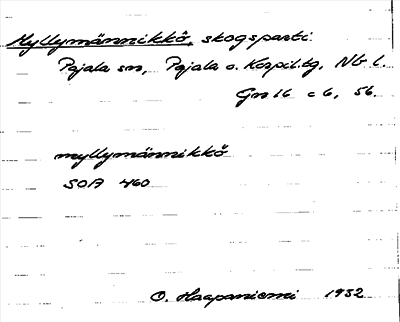 Myllymännikkö, skogsparti
Pajala sn, Pajala o. Korpil. tg, Nb l.
Gn 16 c 6, 56.
myllymännikkö
SOA 460
O. Haapaniemi 1932